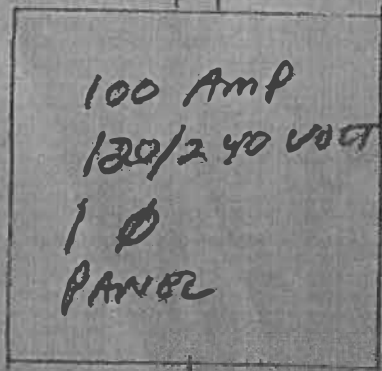 100 AMP
120/240 VOLT
1 Ø
PANEL